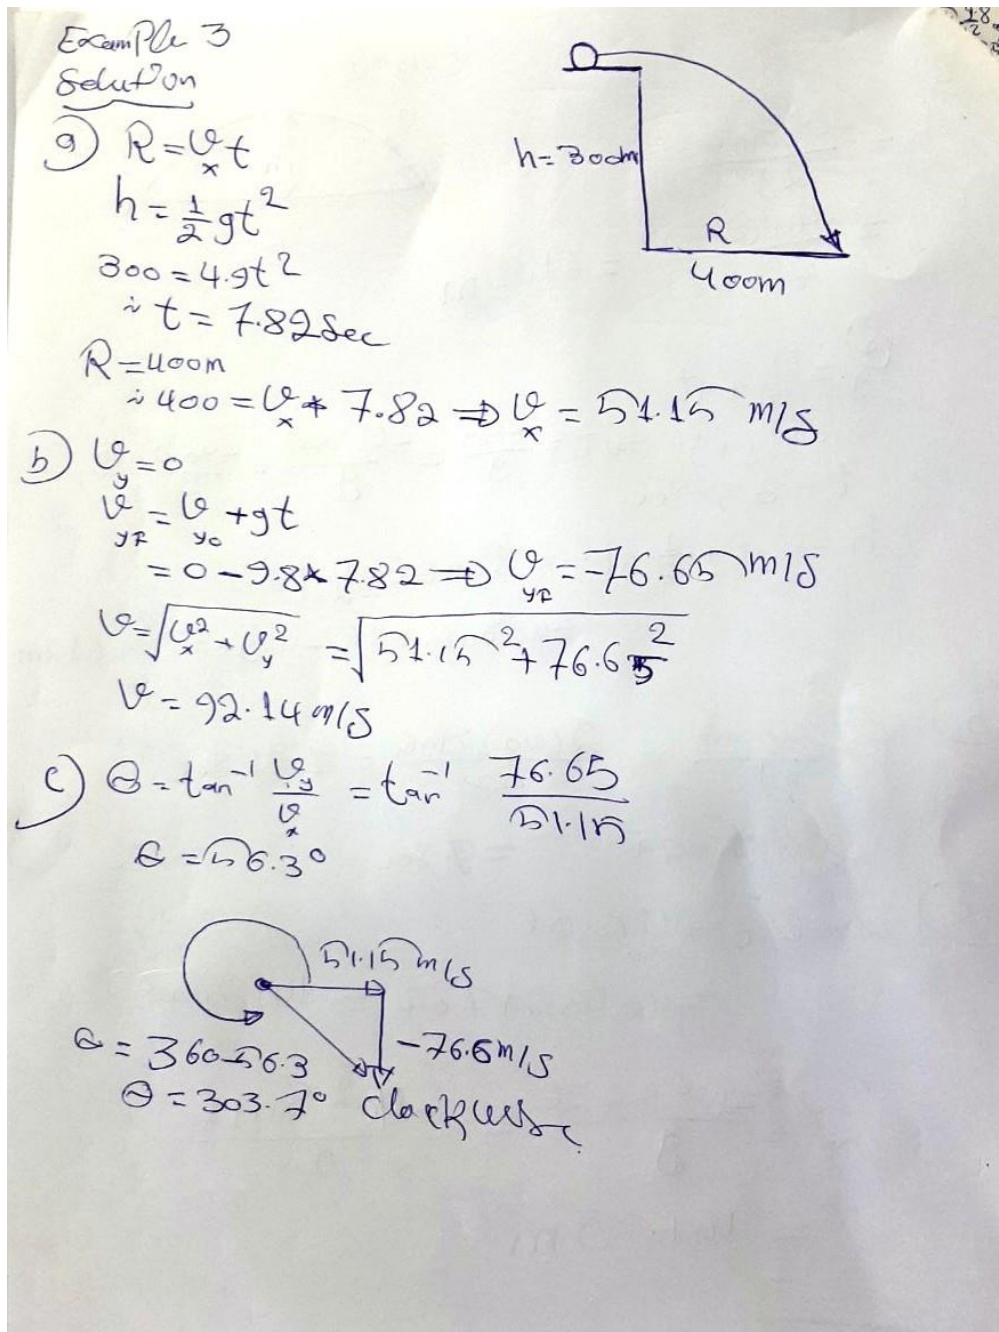 Example 3
Solution
a) R = v_x t
h = 1/2 gt^2
300 = 4.9t^2
∴ t = 7.82 Sec
R = 400m
∴ 400 = v_x * 7.82 ⇒ v_x = 51.15 m/s
h = 300m
R
400m
b) v_y = 0
v_yF = v_yo + gt
= 0 - 9.8 * 7.82 ⇒ v_yF = -76.65 m/s
v = √(v_x^2 + v_y^2) = √(51.15^2 + 76.65^2)
v = 92.14 m/s
c) θ = tan^-1 v_y/v_x = tan^-1 76.65/51.15
θ = 56.3°
51.15 m/s
-76.6 m/s
θ = 360-56.3
θ = 303.7° clockwise